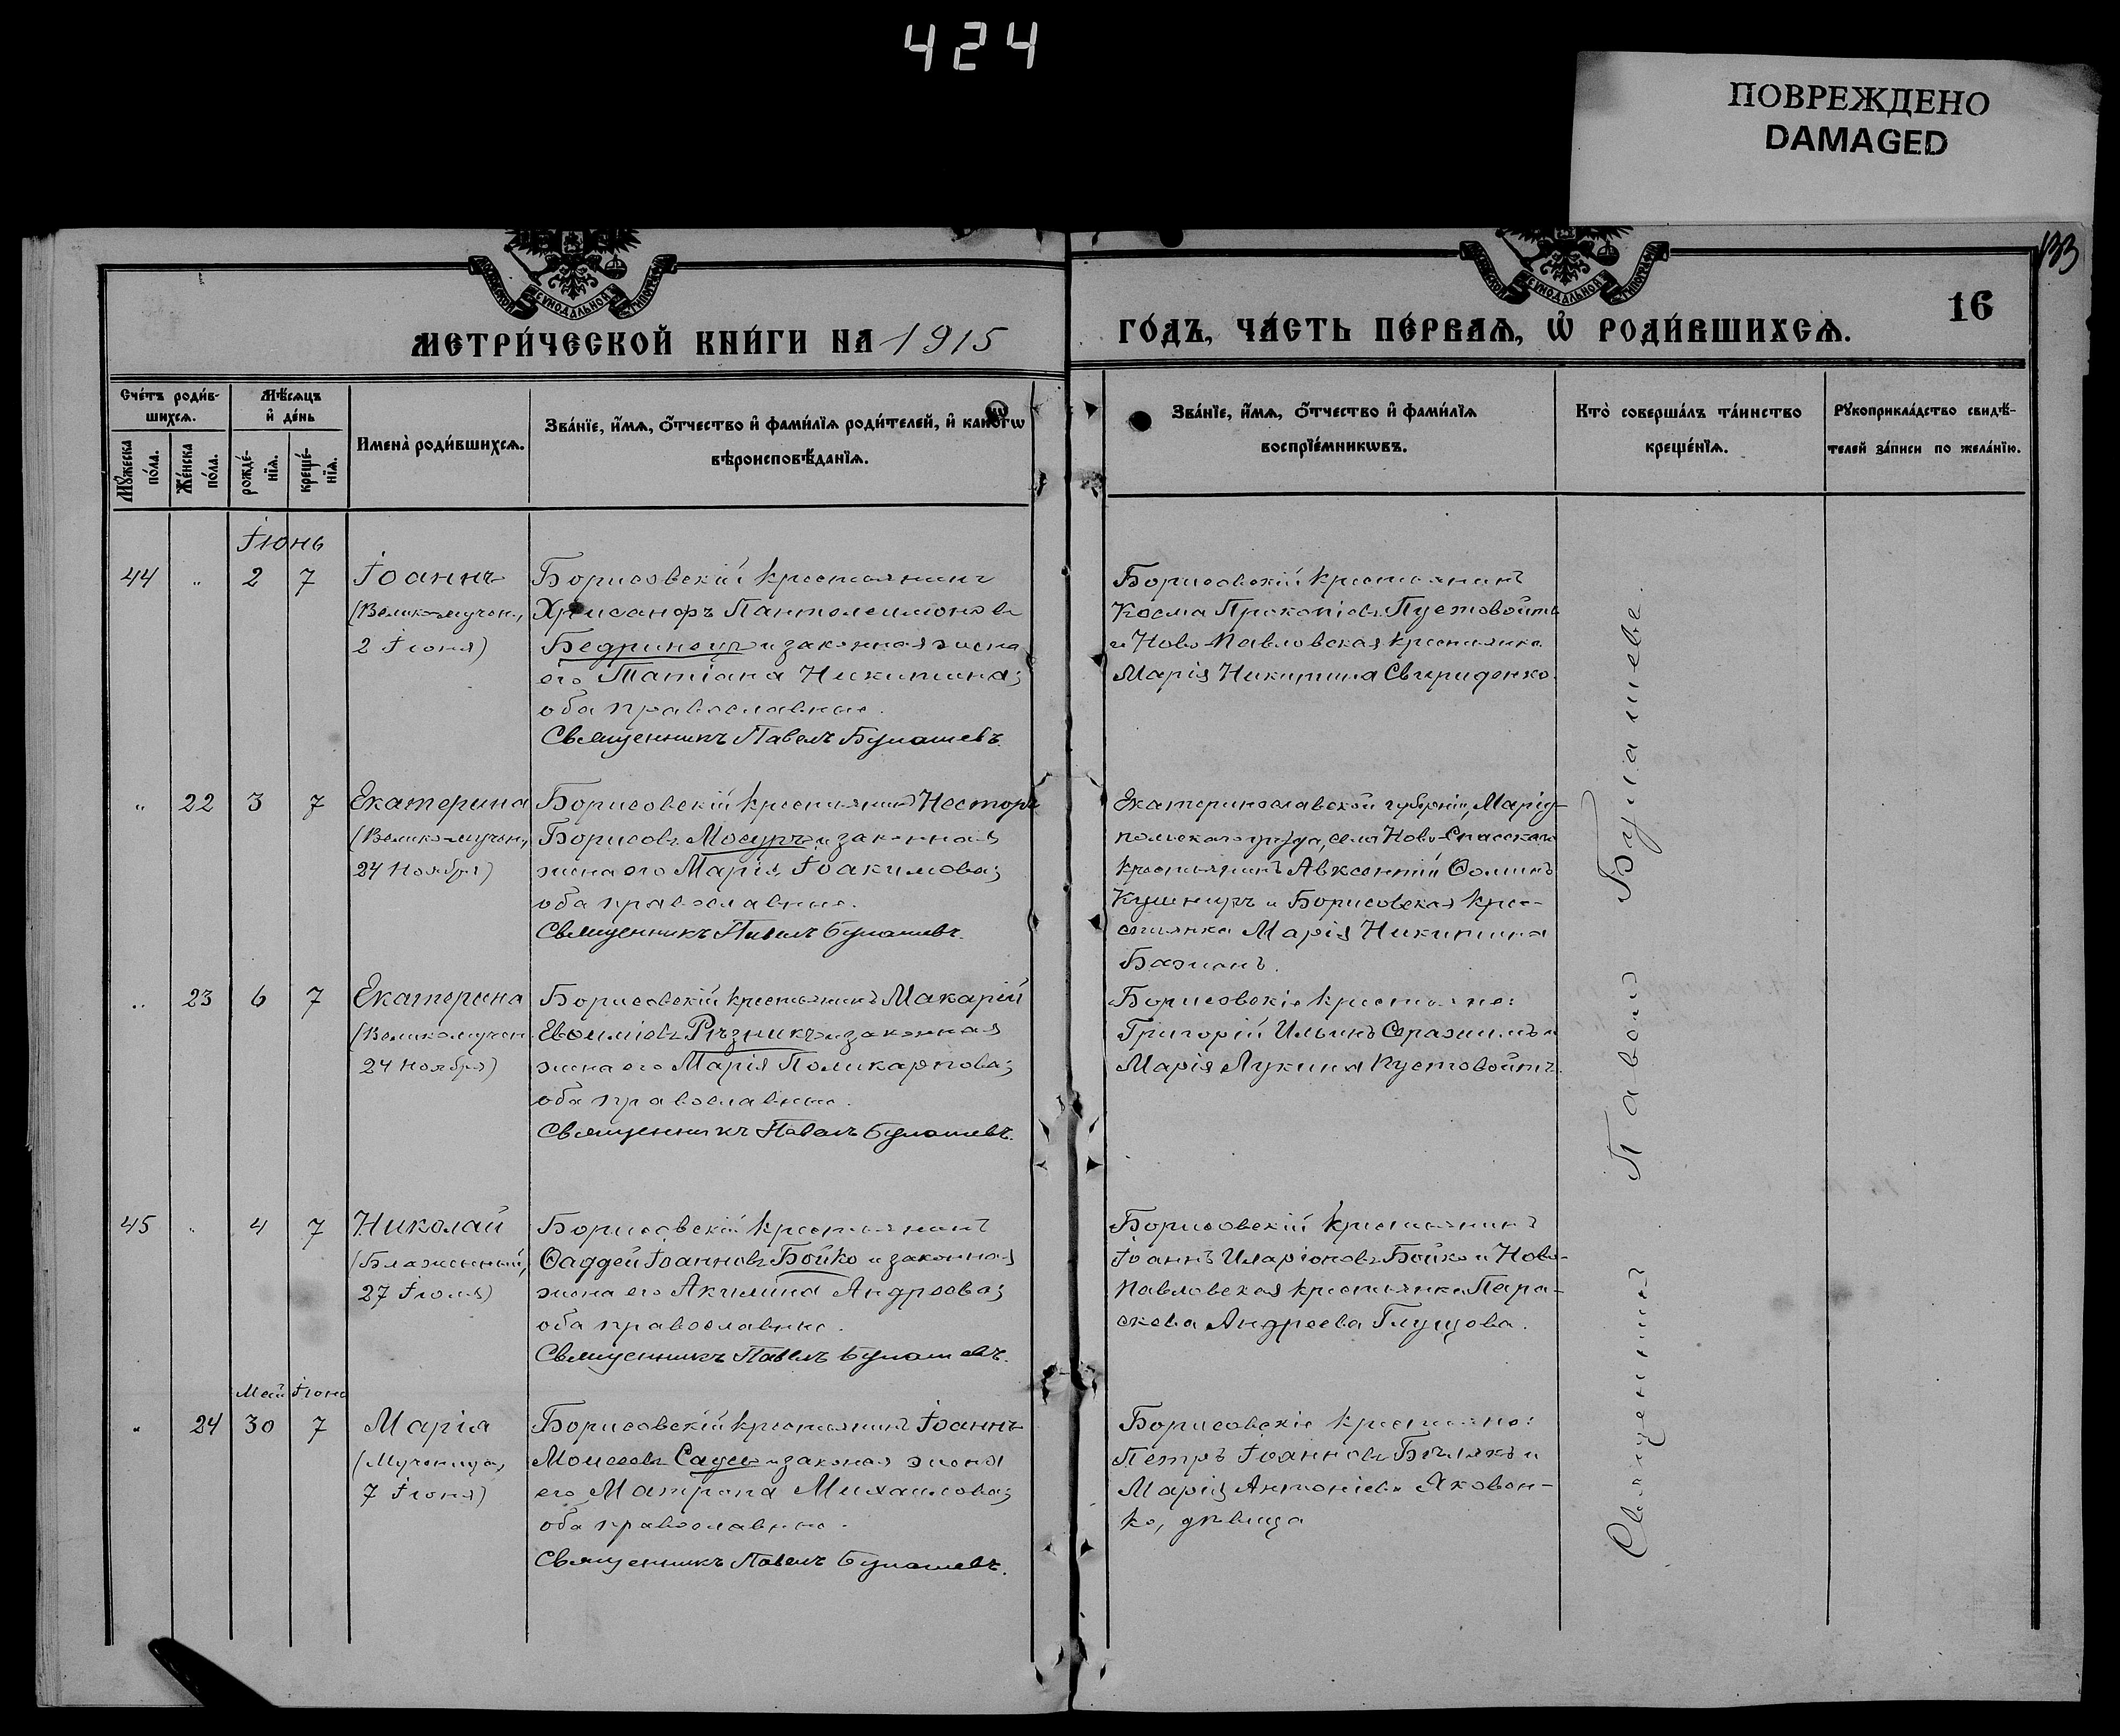 424
ПОВРЕЖДЕНО
DAMAGED
133
16
СѴНОДАЛЬНОЙ
СѴНОДАЛЬНОЙ
МЕТРИ́ЧЕСКОЙ КНИ́ГИ НА 1915
ГО́ДЪ, ЧА́СТЬ ПЕ́РВАѦ, Ѡ҆ РОДИ́ВШИХСѦ.
Сче́тъ роди́в-
шихсѧ.
Мѣ́сѧцъ
и҆ де́нь
Мꙋ́жеска
по́ла.
Же́нска
по́ла.
рожде́-
нїѧ.
креще́-
нїѧ.
Имена̀ роди́вшихсѧ.
Зва́нїе, и҆́мѧ, ѻ҆́тчество и҆ фами́лїѧ роди́телей, и҆ како́гѡ
вѣроисповѣ́данїѧ.
Зва́нїе, и҆́мѧ, ѻ҆́тчество и҆ фами́лїѧ
воспрїе́мникѡвъ.
Кто̀ соверша́лъ та́инство
креще́нїѧ.
Рꙋкоприкла́дство свидѣ́-
телей за́писи по жела́нїю.
Іюнь
44 „ 2 7 Іоаннъ
(Великомучен.,
2 Іюня)
Борисовскій крестьянинъ
Хрисанфъ Пантелеимоновъ
Бедринецъ и законная жена
его Татіана Никитина;
оба православные.
Священникъ Павелъ Булашевъ.
Борисовскій крестьянинъ
Косма Прокопіевъ Пустовойтъ
и Ново-Павловская крестьянка
Марія Никитина Свириденко.
„ 22 3 7 Екатерина
(Великомучен.,
24 Ноября)
Борисовскій крестьянинъ Несторъ
Борисовъ Мосуръ и законная
жена его Марія Іоакимова;
оба православные.
Священникъ Павелъ Булашевъ.
Екатеринославской губерніи, Маріу-
польскаго уѣзда, села Ново-Спасскаго
крестьянинъ Авксентій Ѳоминъ
Кушниръ и Борисовская кре-
стьянка Марія Никитина
Бажанъ.
„ 23 6 7 Екатерина
(Великомучен.
24 Ноября)
Борисовскій крестьянинъ Макарій
Евѳиміевъ Рѣзникъ и законная
жена его Марія Поликарпова;
оба православные.
Священникъ Павелъ Булашевъ.
Борисовскіе крестьяне:
Григорій Ильинъ Серажимъ и
Марія Лукина Пустовойтъ.
45 „ 4 7 Николай
(Блаженный,
27 Іюля)
Борисовскій крестьянинъ
Ѳаддей Іоанновъ Бойко и законная
жена его Акилина Андреева;
оба православные.
Священникъ Павелъ Булашевъ.
Борисовскій крестьянинъ
Іоаннъ Иларіоновъ Бойко и Ново-
Павловская крестьянка Пара-
скева Андреева Глущова.
Май Іюнь
„ 24 30 7 Марія
(Мученица,
7 Іюня)
Борисовскій крестьянинъ Іоаннъ
Моисеевъ Садей и законая жена
его Матрона Михаилова;
оба православные.
Священникъ Павелъ Булашевъ.
Борисовскіе крестьяне:
Петръ Іоанновъ Бѣлякъ и
Марія Антоніева Яковен-
ко, дѣвица
Священникъ Павелъ Булашевъ.